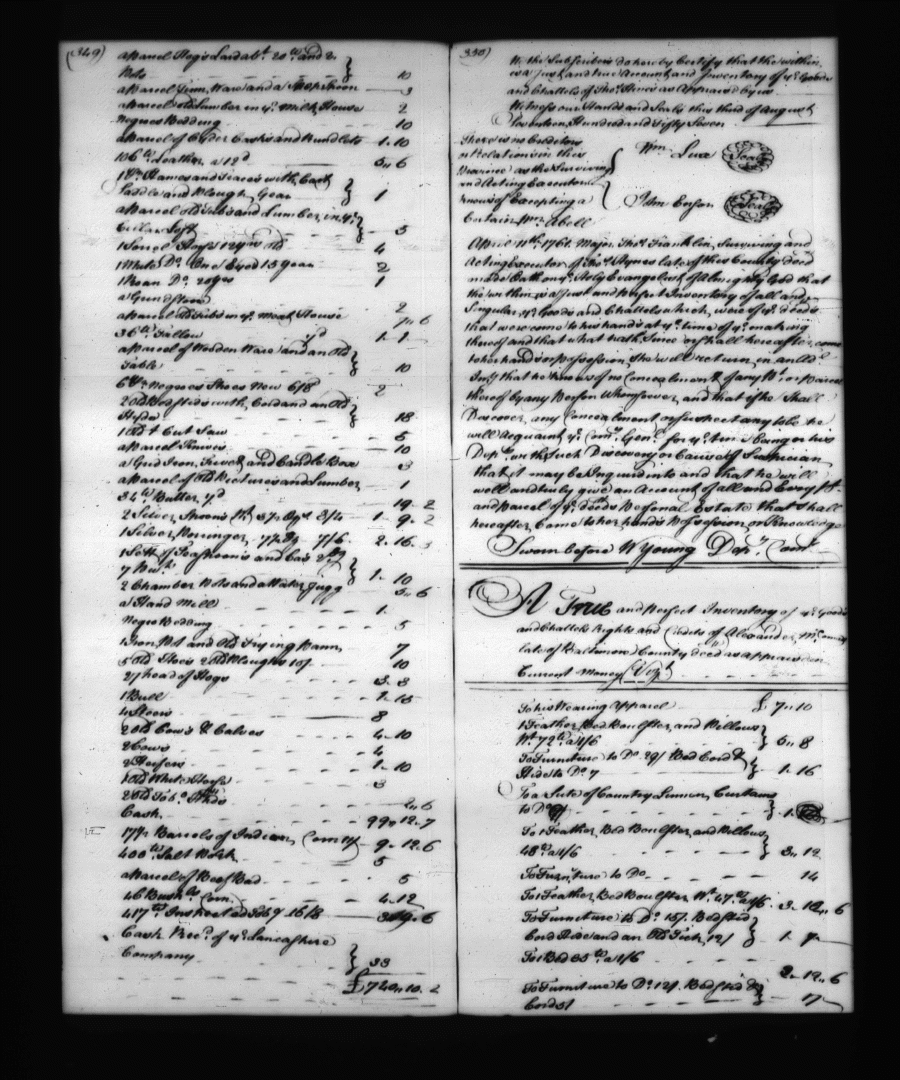 (349)
a Parcel Hogs Lard abt. 20 lb and 2
Pots 10
a Parcel Iron Ware and a 3
a Parcel old Lumber in ye. Milk House 2
Negroes Bedding 10
a Parcel of Cyder Casks and Rundlets 1 - 10
106 lb Leather, a 12d 5 ,, 6
1 Pr. Hames and Traces with Cart
Saddle and Plough Gear 1
a Parcel old Tubs and Lumber in ye.
Cellar Loft 5
1 Sorrel Horse 12 yrs old 4
1 White Do. One Eyed 15 year 2
1 Roan Do. 20 yrs 1
a Grindstone
a Parcel old Tubs in ye. Meat House 2
36 lb Tallow 7d 1 - 1
a Parcel of Wooden Ware and an Old
Table 10
6 Pr. Negroes Shoes New 6/8 2
2 old Bedsteads with Cord and an Old
Hyde 18
1 Old + Cut Saw 5
a Parcel Knives 10
a Grid Iron, Trivet and Candle Box 3
a Parcel of Old Pictures and Lumber 1
34 lb Butter 7d 19 - 2
2 Silver Spoons 8/4 1 - 9 - 2
1 Silver Porringer 7/6 2 - 16 - 3
1 Sett of Teaspoons and
7
1 - 10
2 Chamber Pots and a Water Jugg 5 - 6
a Hand Mill 1
Negro Bedding 5
1 Iron Pot and Old Frying Pann 7
5 Old Hoes 2 old Ploughs 10/ 10
27 head of Hogs 3 - 8
1 Bull 1 - 15
4 Steers 8
2 old Cows & Calves 4 - 10
2 Cows 4
2 Heifers 1 - 10
1 Old White Horse 3
2 old Tobo. Hhds 2 ,, 6
Cash 99 ,, 12 - 7
17½ Barrels of Indian Corn 11/ 9 - 12 - 6
400 lb Salt Pork 5
a Parcel of Beef Bad 5
46 Bushls Corn 4 - 12
417 lb Inspected Tobo 16/8
Cash Recd. of ye. Lancashire
Company 33
£ 740 ,, 10 - 2
350)
We the Subscribers do hereby Certify that the within
is a just and true Account and Inventory of ye. Goods
and Chattels of Thos. as Appraised by us
Witness our Hands and Seals this third of August
Seventeen Hundred and Fifty Seven
There is no Creditors
or relations in this
Province as the Surviving
and Acting Executor
knows of Excepting a
Certain Mr. Abell
Wm. Lux Seal
John Ensor Seal
April 11th. 1761. Major Thos. Franklin, Surviving and
Acting Executor of Thos. late of this County deced
made Oath on ye. Holy Evangelist of Almighty God that
the within is a just and Perfect Inventory of all and
Singular ye. Goods and Chattels which were of ye. deceds
that were come to his hands at ye. time of ye. making
thereof and that what hath Since or shall hereafter come
to her hands or possession, she will return, in an Addl.
Invy. that he knows of no Concealment of any Pt. or Parcel
thereof by any Person Whomsoever, and that if she Shall
Discover any Concealment or suspect any to be he
will Acquaint ye. Comy. Genl. for ye. time being or his
Depy. with Such Discovery or Cause of Suspicion
that it may be Enquired into and that he will
well and truly give an Account of all and Every Pt.
and Parcel of ye. deceds Personal Estate that shall
hereafter Come to her hands Possession or Knowledge
Sworn before W Young Depy. Com.
A True and Perfect Inventory of ye. Goods
and Chattels Rights and Credits of Alexander
late of Baltimore County deced as appraised in
Current Money (Vizt.
To his Wearing Apparel £ 7 ,, 10
1 Feather Bed Boulster and Pillows
Wt. 72 lb a 1/6 5 ,, 8
To Furniture to Do. 29/ Bed Cord &
Hide to Do. 7 1 - 16
To a Sute of Country Linnen Curtains
to Do. 1
To 1 Feather Bed Boulster and Pillows
48 lb a 1/6 3 ,, 12
To Furniture to Do. 14
To 1 Feather Bed Boulster Wt. 47 lb a 1/6 3 - 10 ,, 6
To Furniture to Do. 15/. Bedsted
Cord Hide and an Old Tick, 12/ 1 - 7
To 1 Bed 35 lb a 1/6
2 - 12 ,, 6
To Furniture to Do. 12/. Bedsted &
Cord 5/ 17